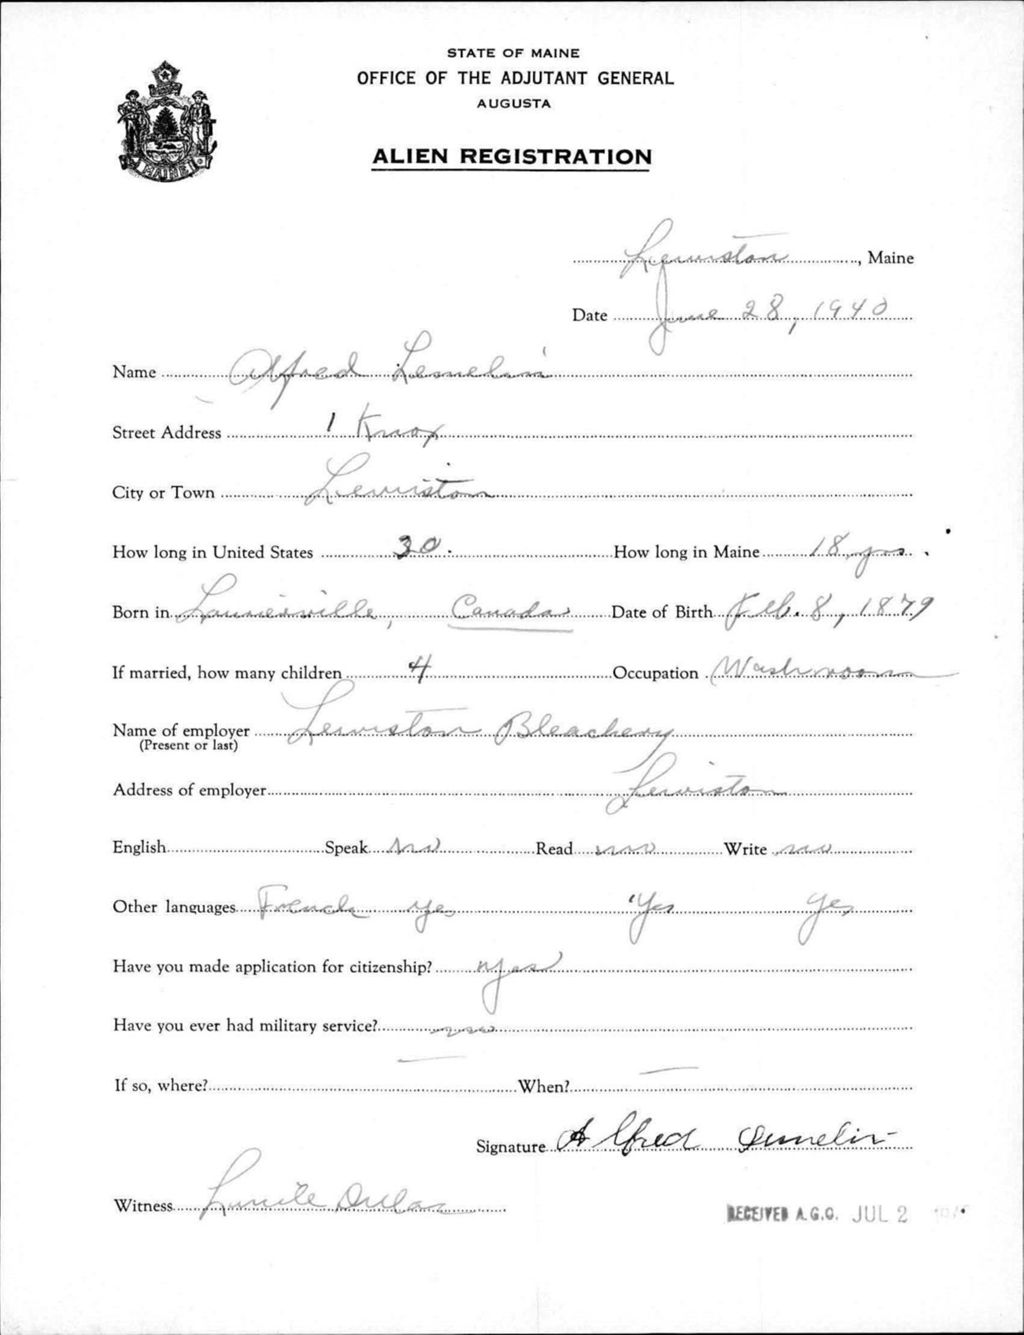 STATE OF MAINE
OFFICE OF THE ADJUTANT GENERAL
AUGUSTA
ALIEN REGISTRATION
Lewiston, Maine
Date June 28, 1940
Name Alfred Lemelin
Street Address 1 Knox
City or Town Lewiston
How long in United States 30. How long in Maine 18 yrs.
Born in Laurierville, Canada Date of Birth Feb. 8, 1879
If married, how many children 4 Occupation Washroom
Name of employer Lewiston Bleachery
(Present or last)
Address of employer Lewiston
English Speak no Read no Write no
Other languages French yes Yes Yes
Have you made application for citizenship? yes
Have you ever had military service? no
If so, where? — When? —
Signature Alfred Lemelin
Witness Lucile
RECEIVED A.G.O. JUL 2